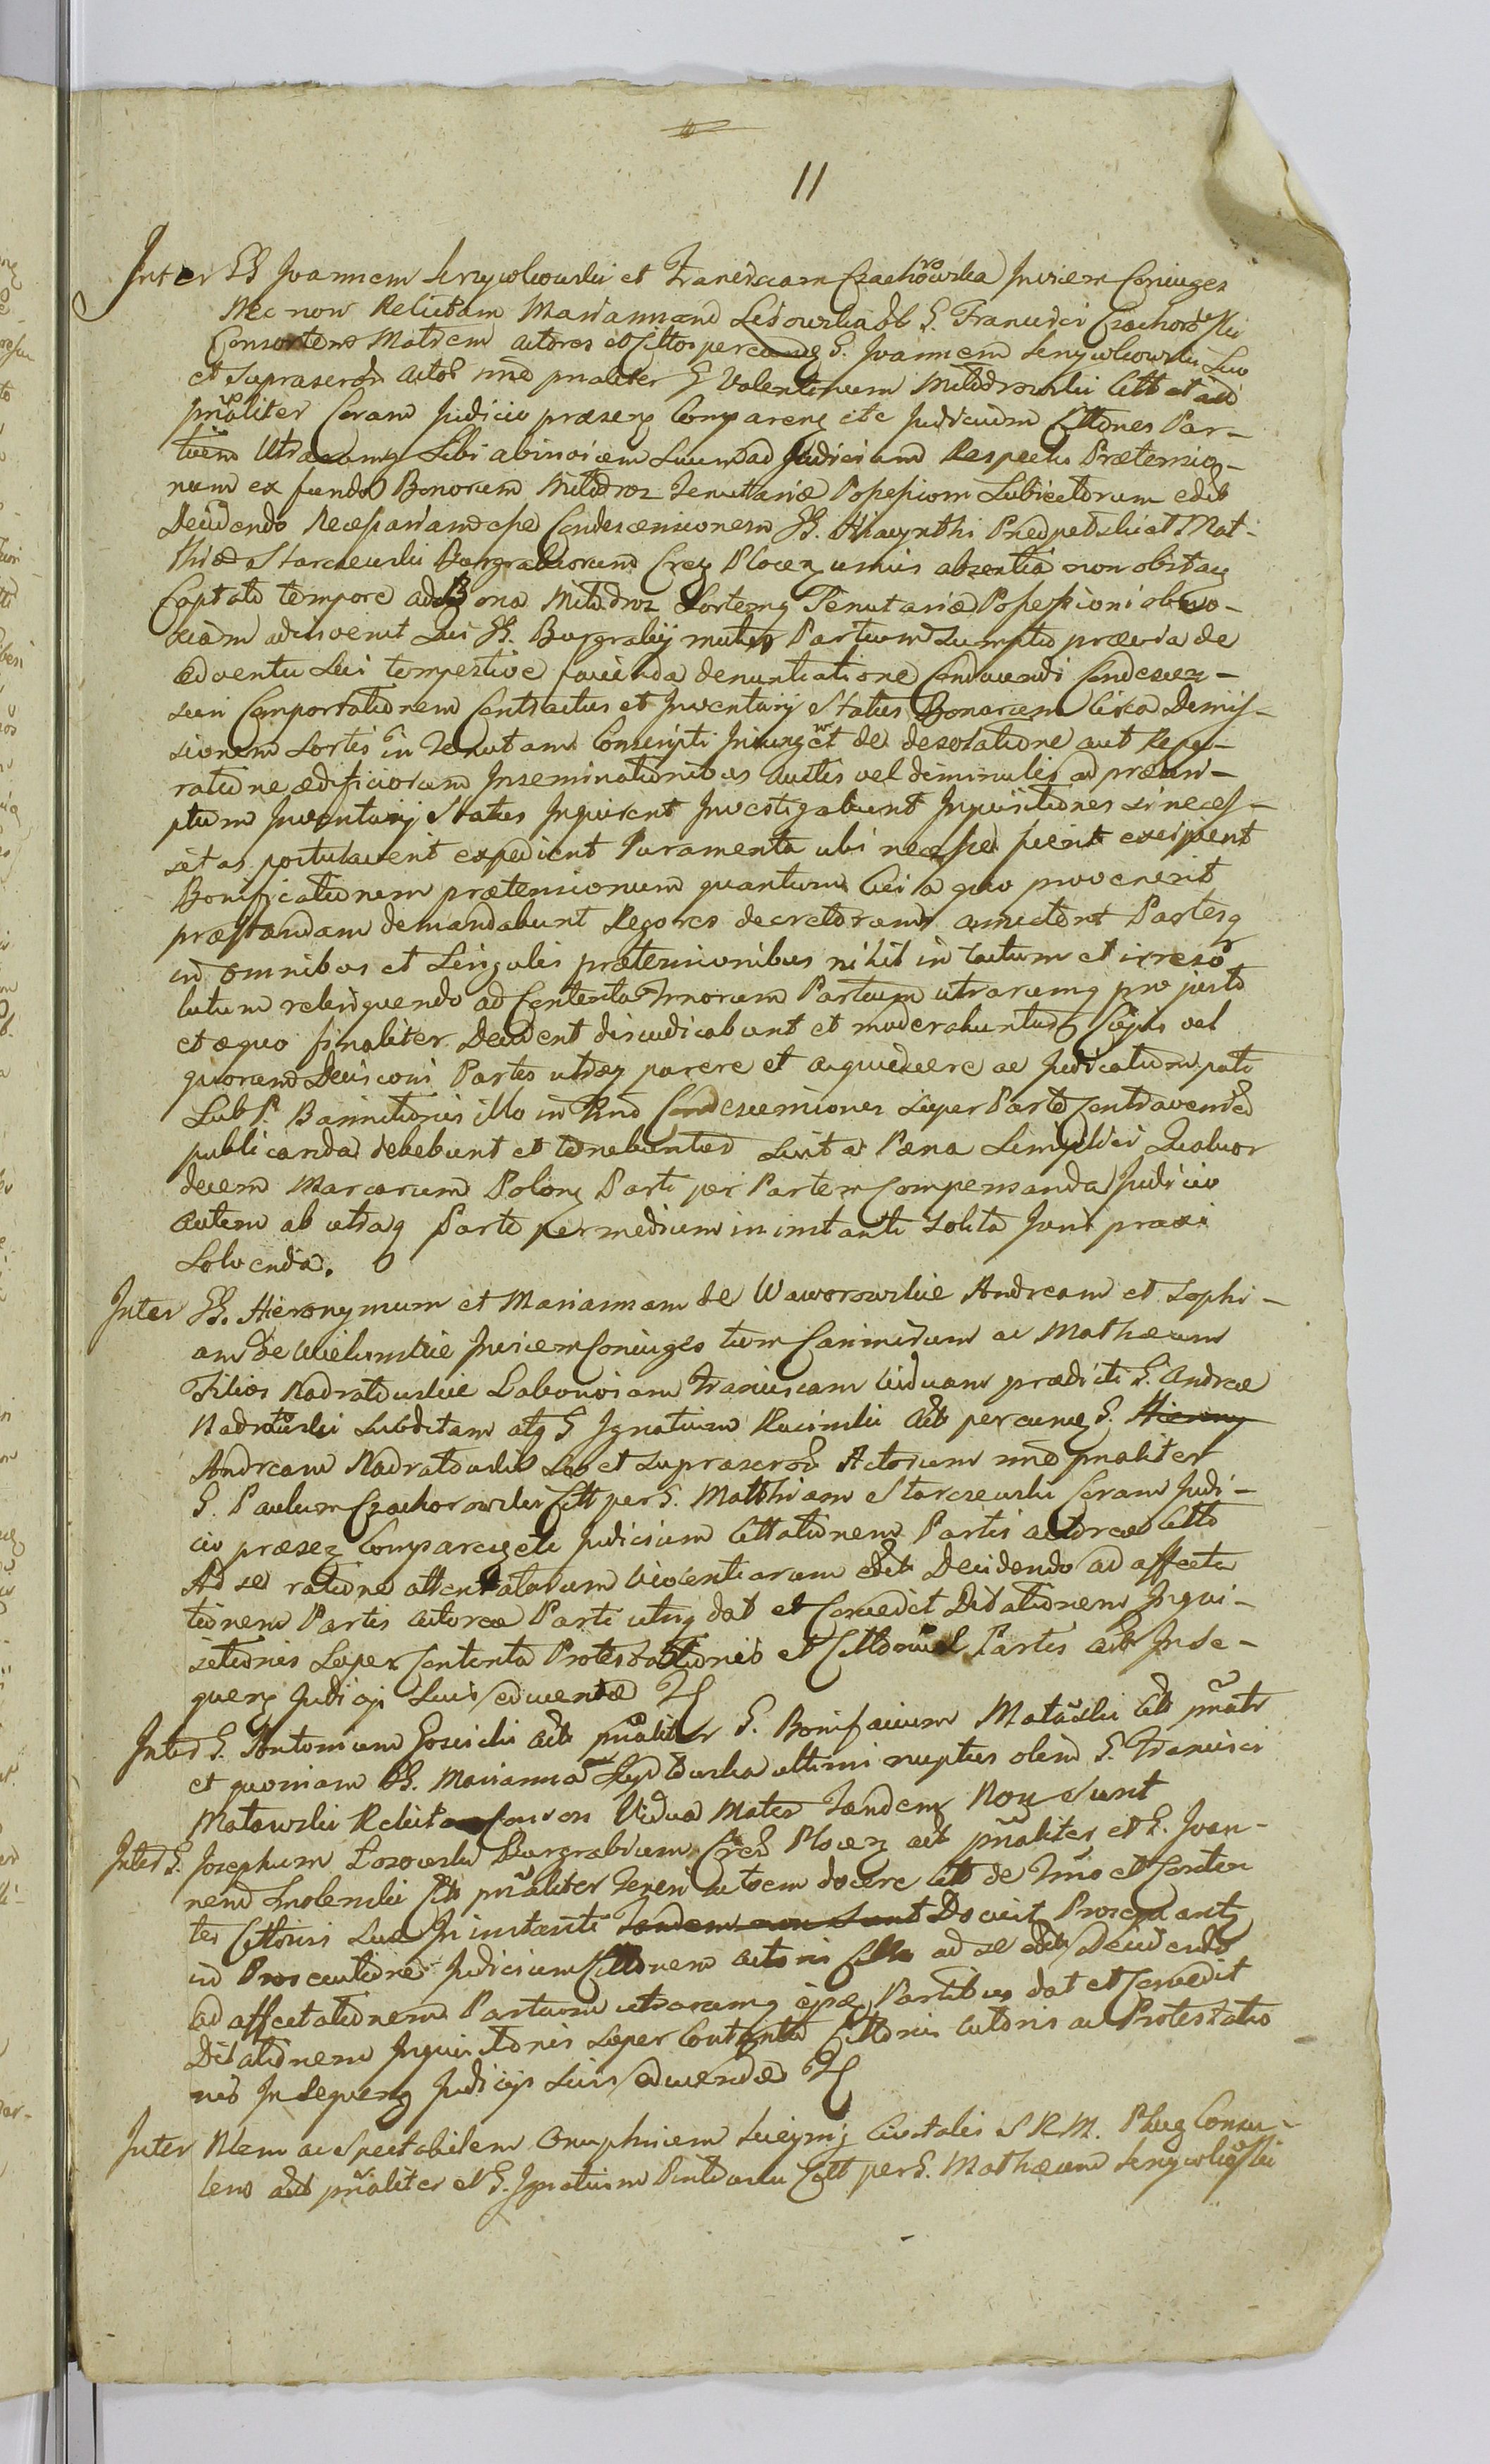 11
Inter GG Joannem Lenczwkowski et Franciscam Czachorowska Invicem Coniuges
Nec non Relictam Mariannam Lisowska olb G. Francisci Czachorowski
Consortem Matrem actores et Cittos per eumdq G. Joannem Suo
et suprascrbr Actor nne pnaliter G Valentinum Miłodrowski Citt et act
pnaliter Coram Judicio præsenz Comparenz etc Judicium Cittones Par-
tium Utrarumq Sibi abinvicem suum ad Judicium Respectu Prætensio-
num ex fundo Bonorum Miłodroz Tenutariæ Possessioni Subiectorum edit
Decidendo Necessariam esse Condescensionem GG. Hiacynthi et Mat-
thiæ Starczewski Burgrabiorum Crey Plocenz unius absentia non obstan
Captato tempore ad Bona Miłodroz Sortemq Tenutariæ Possessioni obno-
xiam adinvenit Qui GG. Burgrabij mutuo Partium Sumptu prævia de
adventu sui tempestive facienda denuntiatione Conducendi Condescen-
suri Comportationem Contractus et Inventarij Status Bonorum Circa Dimis-
sionem Sortis in Tenutam Conscripti Iniungent de desolatione aut Repa-
ratione ædificiorum Inseminationibus auctis vel diminutis ad præscri-
ptum Inventarij Status Inquirent Investigabunt Inquisitiones si neces-
sitas postulaverit expedient Juramenta ubi necesse fuerit excipient
Bonificationem prætensionum quantum Cui a quo provenerit
præstandam demandabunt Rigores decretorum amictent Partesq
in omnibus et Singulis prætensionibus nihil in Tactum et irreso
lutum relinquendo ad Contenta Tmorum Partium utrarumq pro justo
et æquo finaliter Decident disiudicabunt et moderabuntur Cujus vel
quorum Decisioni Partes utræq parere et acquiescere ac Judicatum pati
Sub P. Bannitionis illo in Tmo Condescensionis super Parte Contraveniend
publicanda debebunt et tenebuntur Sicut a Pæna Simplici Quatuor
decem Marcarum Polonz Parti per Partem Compensanda Judicio
autem ab utraq Parte per medium in instanti Solita Juris praxi
Solvenda.
Inter GG. Hieronymum et Mariannam de Waworowskie Andream et Sophi-
am de Invicem Coniuges tum Casimirum ac Mathæum
Filios Nadratowskie Laboriosam Franciscam Viduam prædicti G. Andreæ
Nadratowski Subditam atq G Ignatium Rucinski Act per eumq G. Hierony
Andream Nadratowski Suo et suprascrbr Actorum nne pnaliter
G. Paulum Czachorowski Citt per G. Matthiam Starczewski Coram Judi-
cio præsenz Comparenz etc Judicium Cittationem Partis actoreæ Citto
Ad se ratione attentatarum Violentiarum edit Decidendo ad affecta
tionem Partis actoreæ Parti utriq dat et Concedit Dilationem Inqui-
sitionis Super Contenta Protestationis et Cittonis Partis act Inse-
quenz Judicijs Suis educendæ
Inter G. Antonium Gosiicki act pnaliter G. Bonifacium Matawski Citt pnatr
et quoniam G. Marianna ultimi nuptus olim G. Francisci
Matawski Relicta Consors Vidua Mater Tandem Non Sunt
Inter G. Josephum Łosowski Burgrabium Cred Plocenz act pnaliter et G. Joan-
nem Smolenski Citt pnaliter Teneri autoem docere Citt de Tmo et Conten
tis Cittonis Suæ In instanti Tandem non sunt Docuit Prosequant
in Prosecutione Judicium Cittonem Actoris Citto ad se edit Decidendo
ad affectationem Partium utrarumq ipsæ Partibus dat et Concedit
Dilationem Inquisitionis Super Contenta Cittonis actoris ac Protestatio
nis Insequenz Judicijs Suis educendæ
Inter Nlem ac Spectabilem Onuphrium Civitatis S R M. Plucq Consu-
lem act pnaliter et G. Ignatium Citt per G. Mathæum